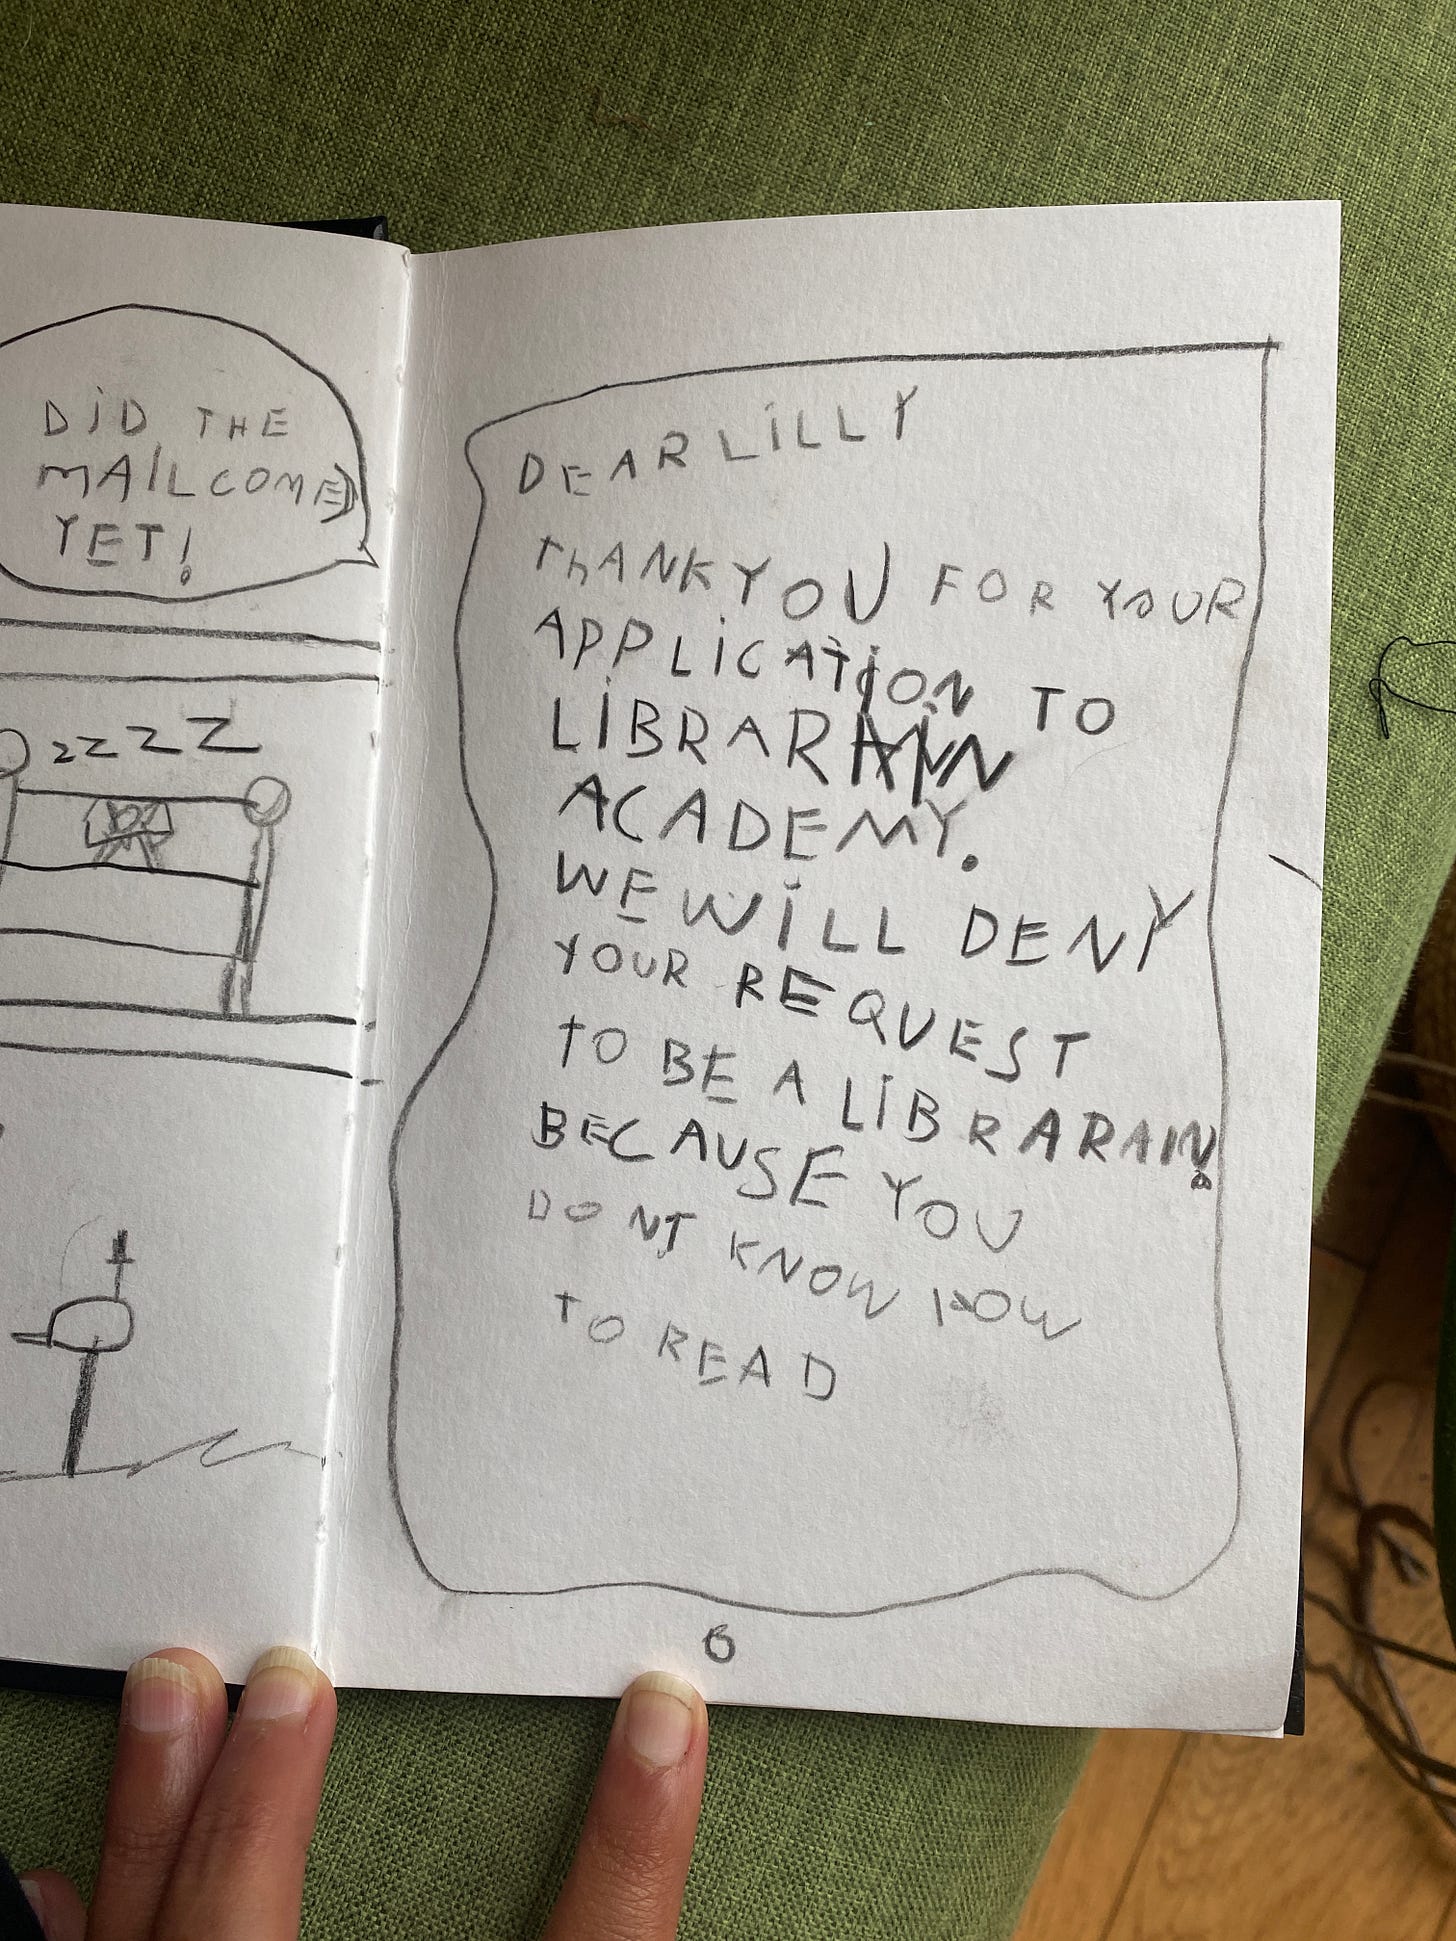 DiD THE
MAiL COME
YET!
zzZZ
DEAR LiLLY
ThANK YOU FOR YOUR
APPLiCATiON TO
LiBRARAiN
ACADEMY.
WE WiLL DENY
YOUR REQUEST
TO BE A LiBRARAIN.
BECAUSE YOU
DONT KNOW HOW
TO READ
6